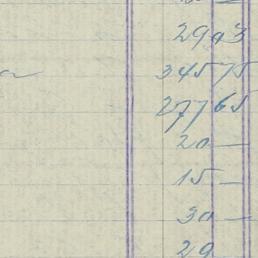 29 03
a 345 75
277 65
20 —
15 —
30 —
29